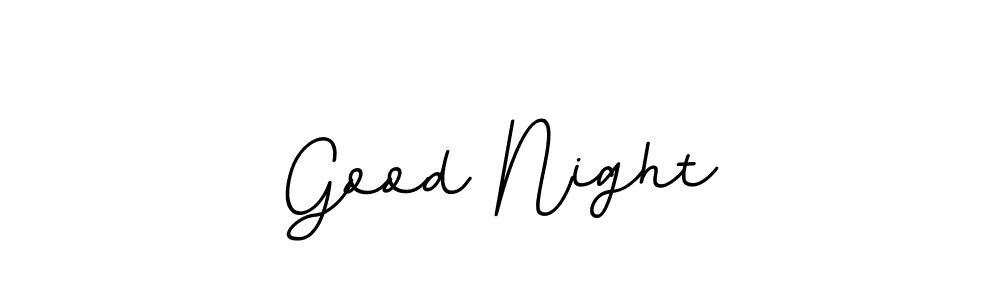 Good Night